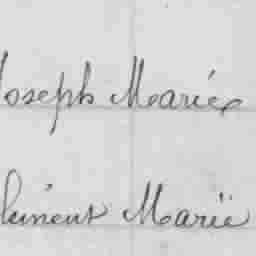 Joseph Marie
Clément Marie